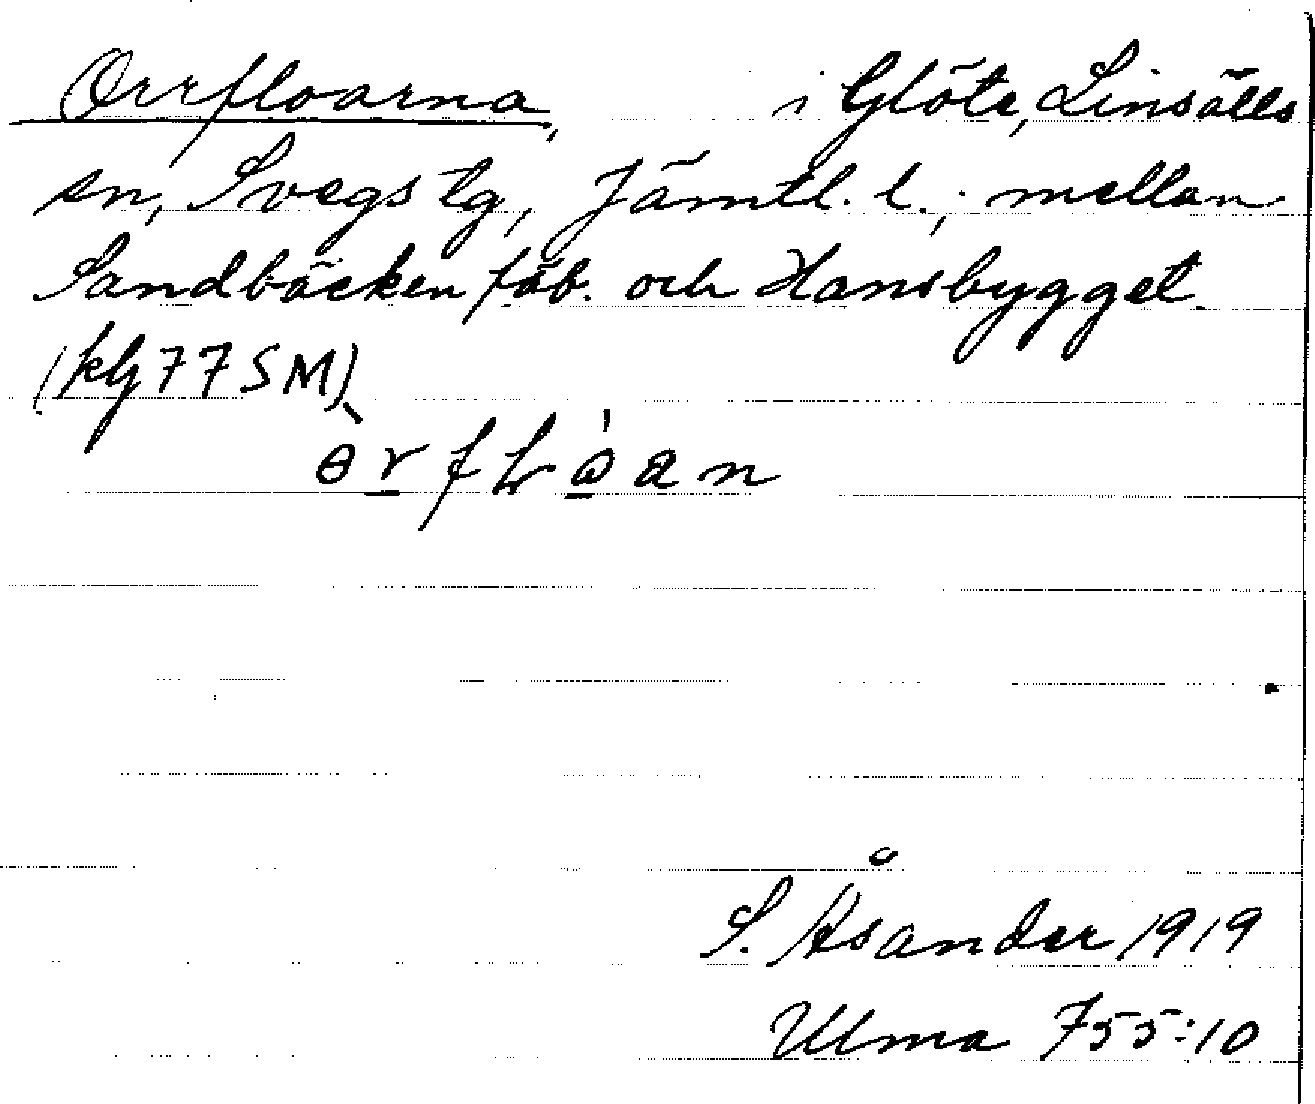 Orrfloarna, i Glöte, Linsälls
sn, Svegs tg, Jämtl. l.; mellan
Sandbäcken fäb. och Hansbygget.
(kbl 77 SM)
S. Åsander 1919
Ulma 755:10